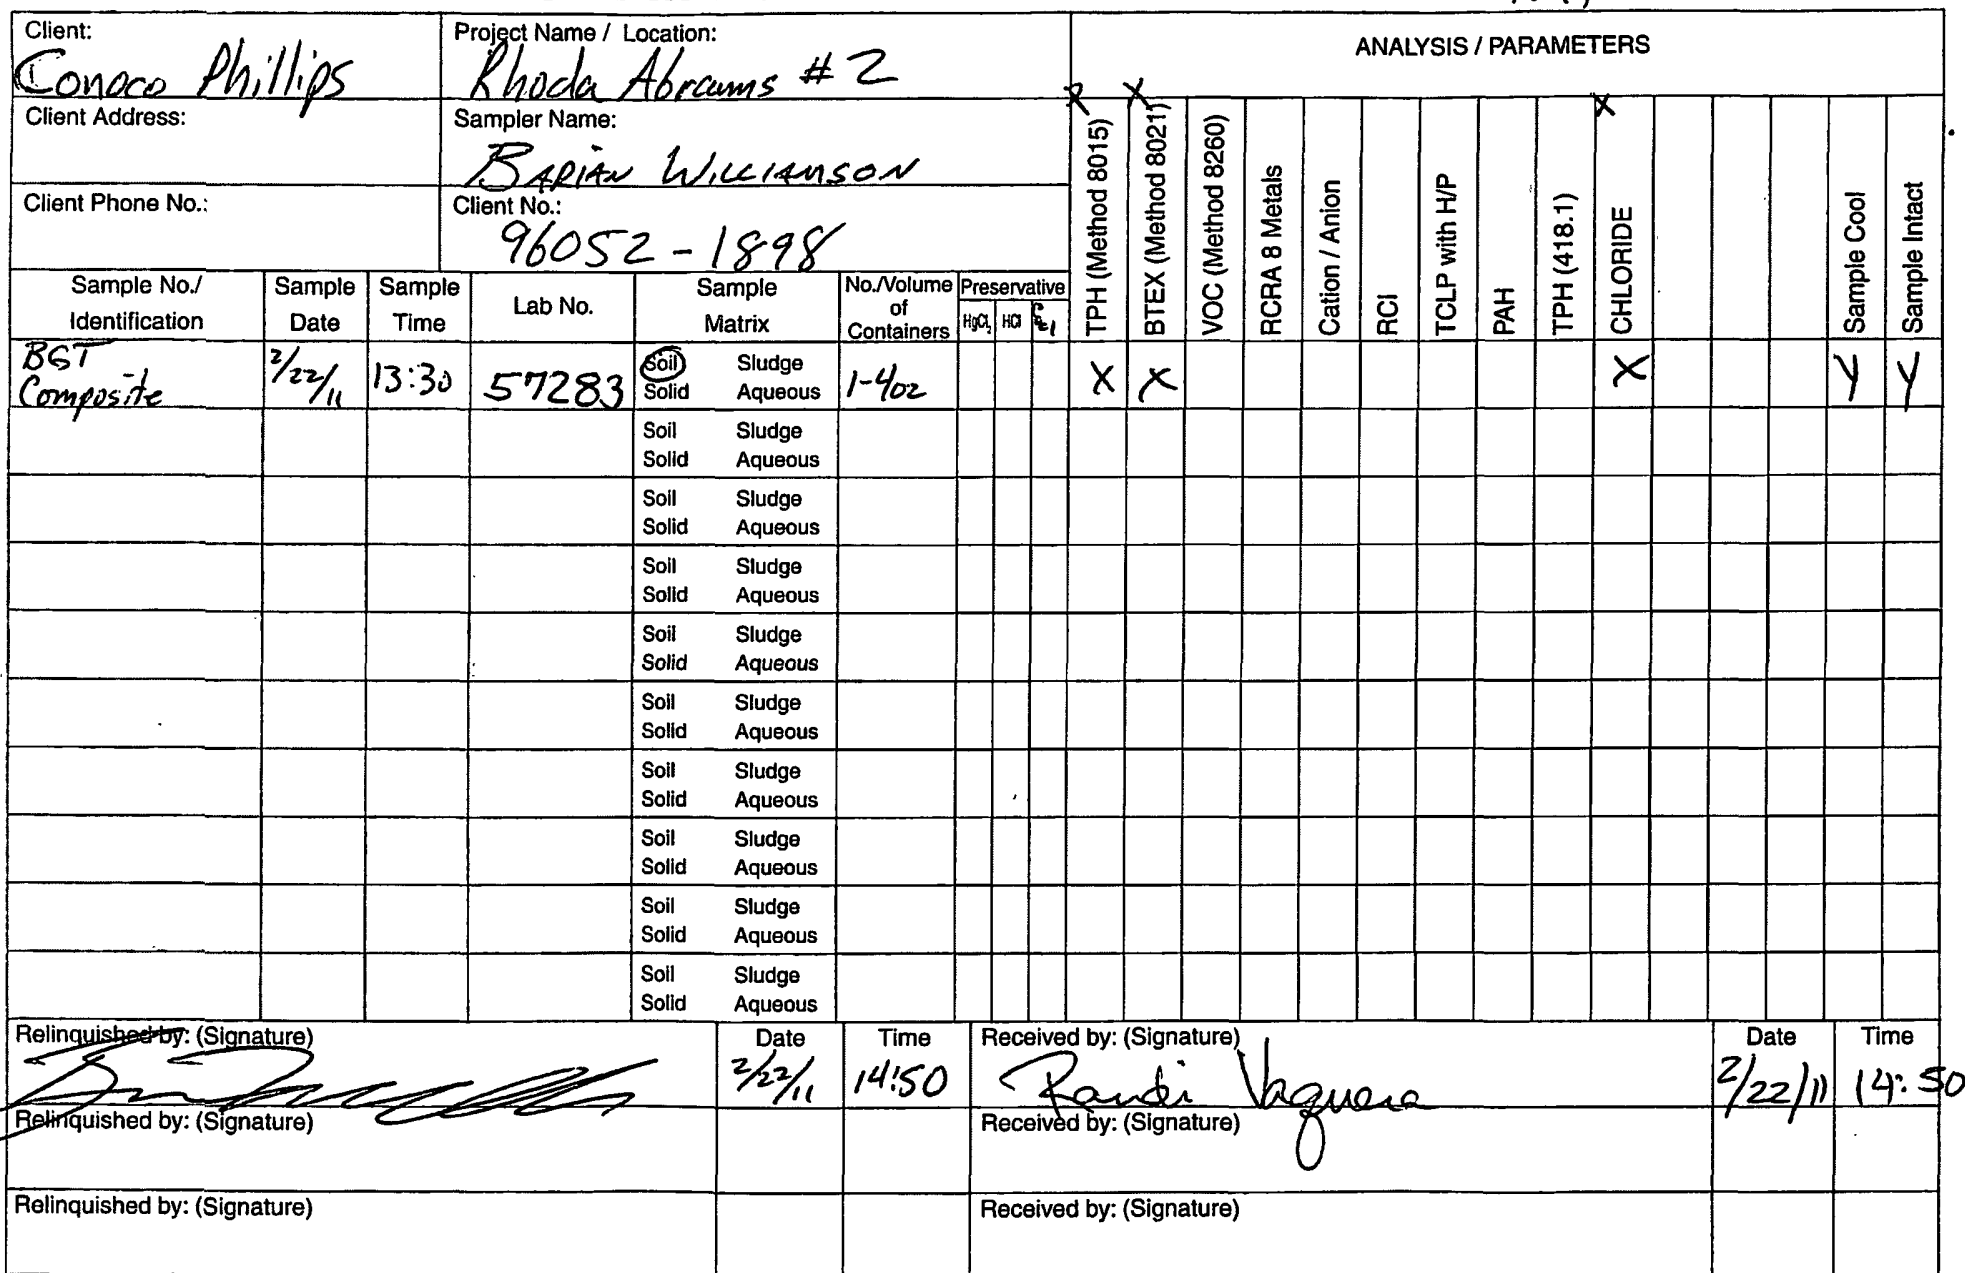 Client: Project Name / Location: ANALYSIS / PARAMETERS
Conoco Phillips Rhoda Abrams # 2
X X X
Client Address: Sampler Name:
BARIAN WILLIAMSON
Client Phone No.: Client No.:
96052-1898
Sample No./ Identification Sample Date Sample Time Lab No. Sample Matrix No./Volume of Containers Preservative HgCl₂ HCl TPH (Method 8015) BTEX (Method 8021) VOC (Method 8260) RCRA 8 Metals Cation / Anion RCI TCLP with H/P PAH TPH (418.1) CHLORIDE Sample Cool Sample Intact
BGT Composite 2/22/11 13:30 57283 Soil Sludge 1-4oz X X X Y Y
Solid Aqueous
Soil Sludge
Solid Aqueous
Soil Sludge
Solid Aqueous
Soil Sludge
Solid Aqueous
Soil Sludge
Solid Aqueous
Soil Sludge
Solid Aqueous
Soil Sludge
Solid Aqueous
Soil Sludge
Solid Aqueous
Soil Sludge
Solid Aqueous
Soil Sludge
Solid Aqueous
Relinquished by: (Signature) Date Time Received by: (Signature) Date Time
2/22/11 14:50 Randi Vaquera 2/22/11 14:50
Relinquished by: (Signature) Received by: (Signature)
Relinquished by: (Signature) Received by: (Signature)